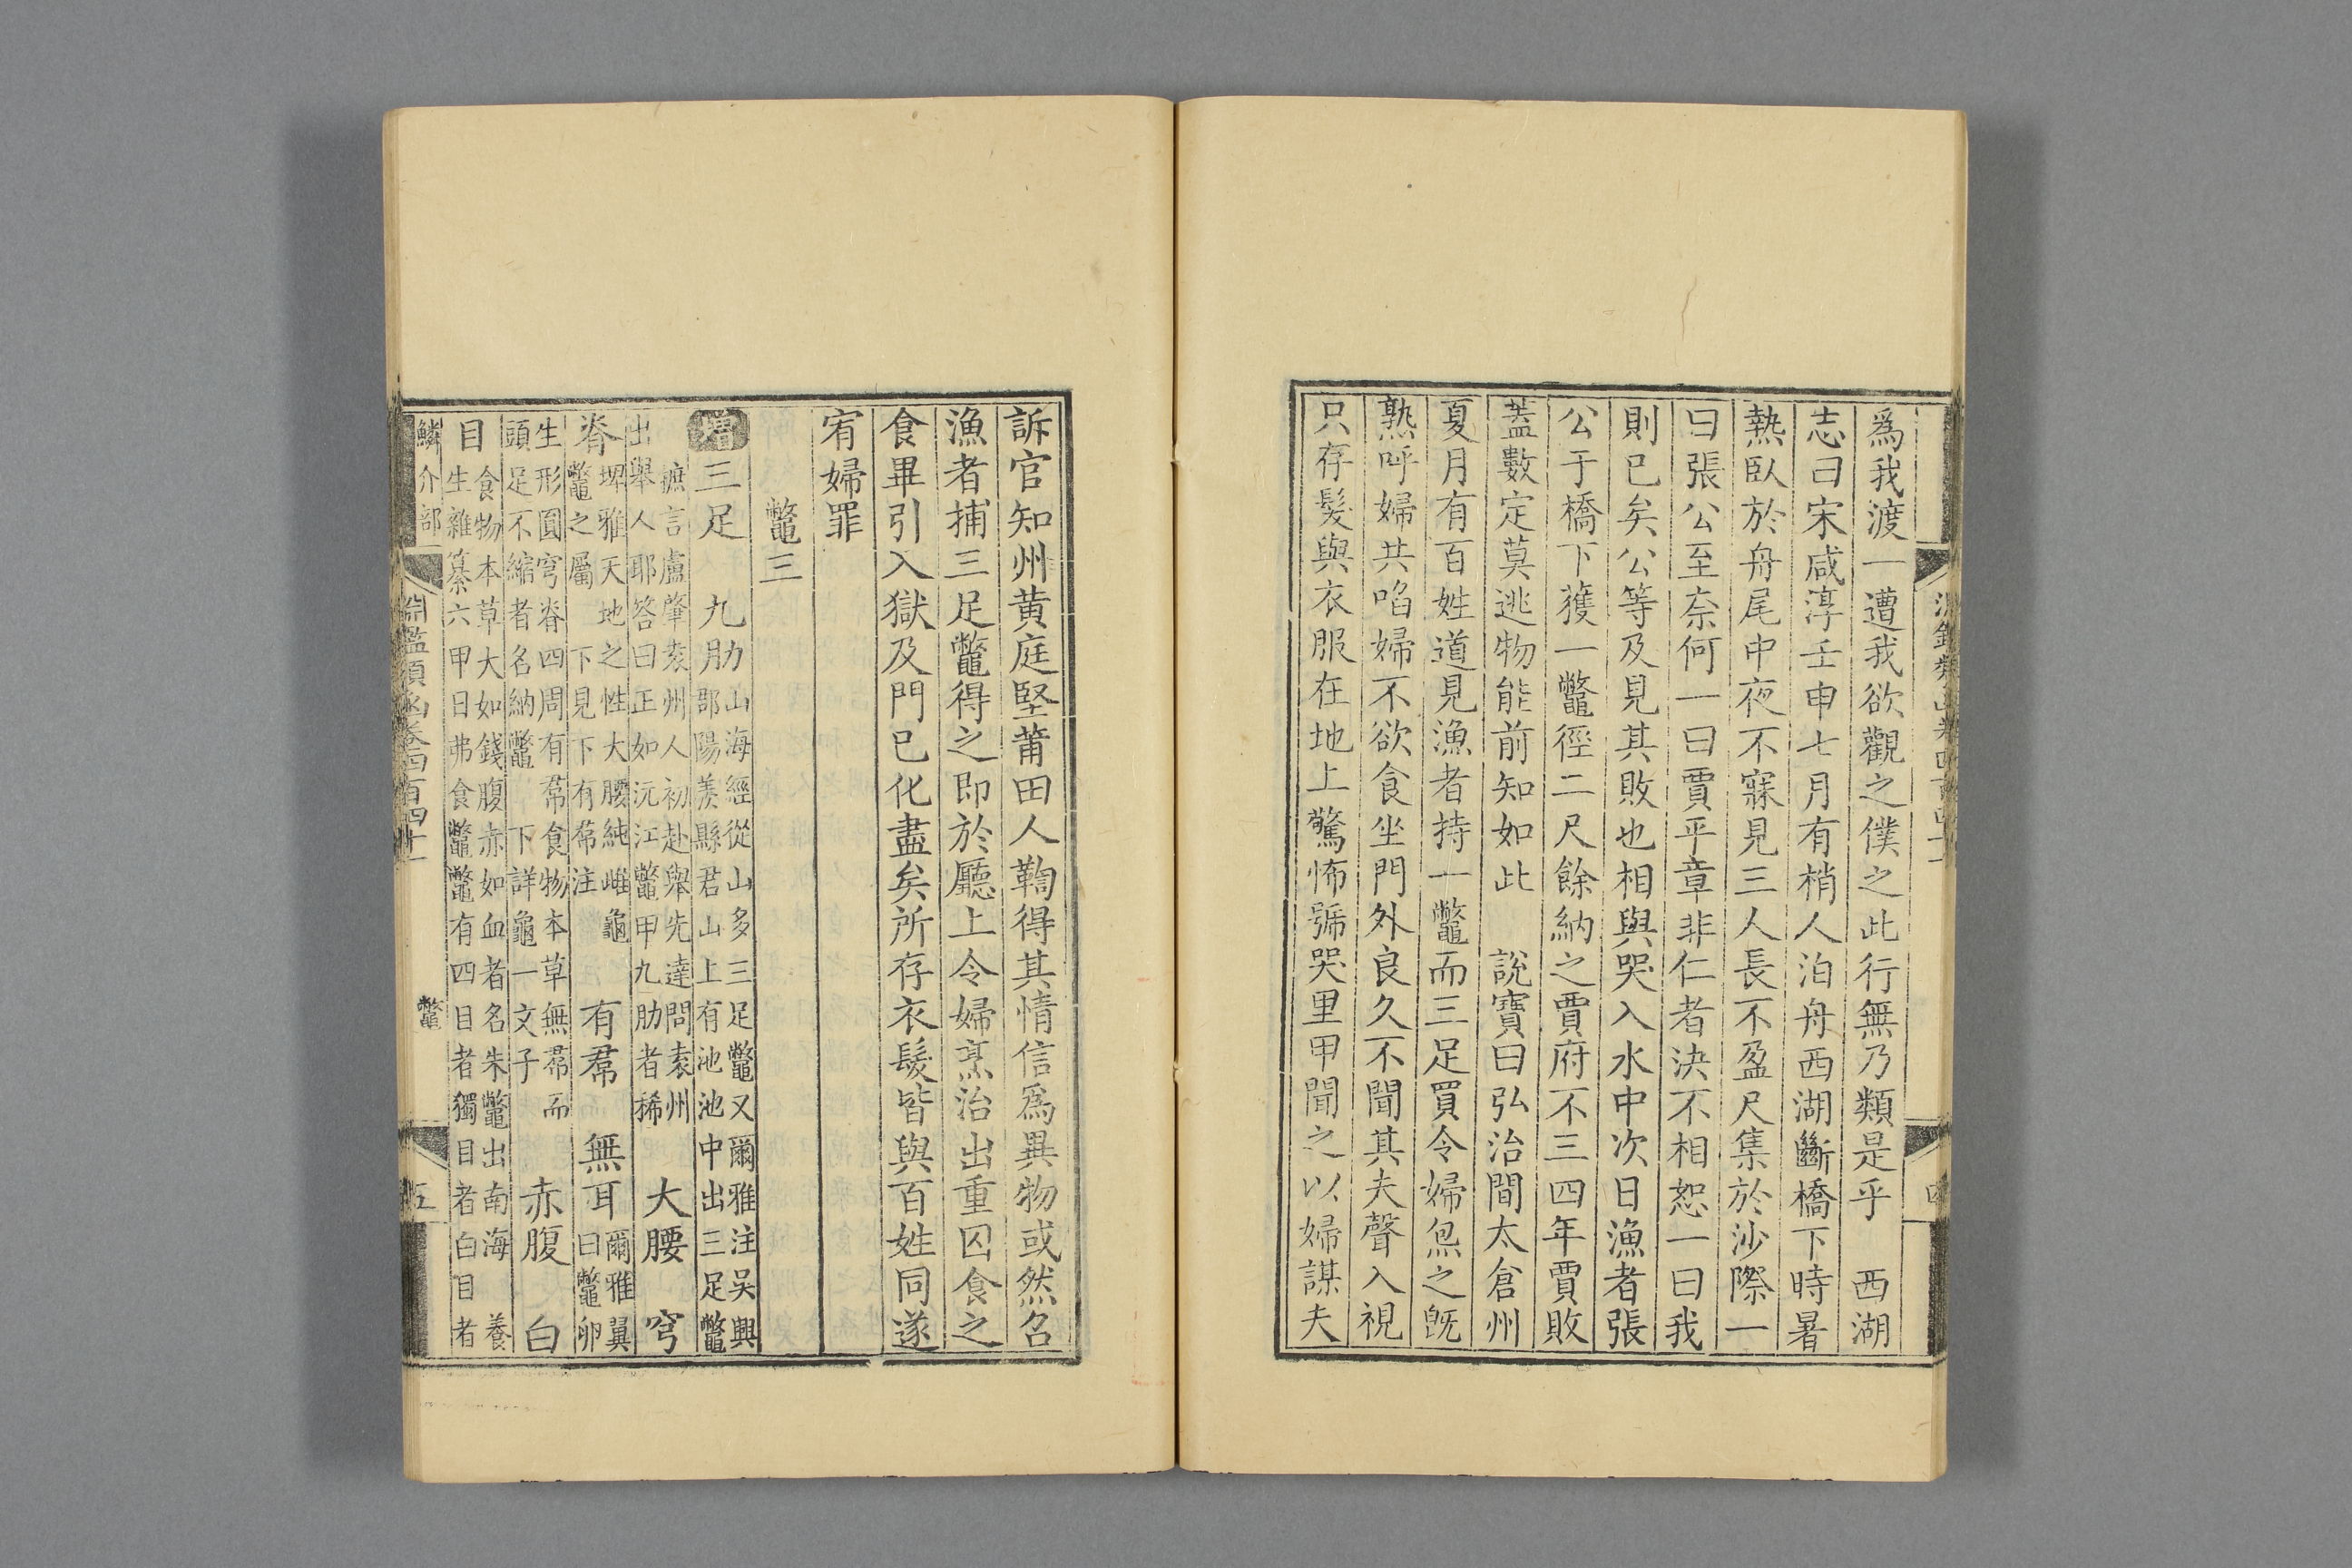 爲我渡一遭我欲觀之僕之此行無乃類是乎　西湖
志曰宋咸淳壬申七月有梢人泊舟西湖斷橋下時暑
熱臥於舟尾中夜不寐見三人長不盈尺集於沙際一
曰張公至奈何一曰賈平章非仁者決不相恕一曰我
則已矣公等及見其敗也相與哭入水中次日漁者張
公于橋下獲一鼈徑二尺餘納之賈府不三四年賈敗
蓋數定莫逃物能前知如此　說寶曰弘治間太倉州
夏月有百姓道見漁者持一鼈而三足買令婦炰之旣
熟呼婦共啗婦不欲食坐門外良久不聞其夫聲入視
只存髮與衣服在地上驚怖號哭里甲聞之以婦謀夫
訴官知州黃庭堅莆田人鞫得其情信爲異物或然召
漁者捕三足鼈得之即於廳上令婦烹治出重囚食之
食畢引入獄及門已化盡矣所存衣髮皆與百姓同遂
宥婦罪
鼈三
增三足　九肋
山海經從山多三足鼈又爾雅注吳興
郡陽羨縣君山上有池池中出三足鼈
摭言盧肇袁州人初赴舉先達問袁州
出舉人耶答曰正如沅江鼈甲九肋者稀
大腰　穹
脊
埤雅天地之性大腰純雌龜
鼈之屬　下見下有帬注
有帬　無耳
爾雅翼
曰鼈卵
生形圓穹脊四周有帬食物本草無帬而
頭足不縮者名納鼈　下詳龜一文子
赤腹　白
目
食物本草大如錢腹赤如血者名朱鼈出南海　養
生雜纂六甲日弗食鼈鼈有四目者獨目者白目者
鱗介部
淵鑑類函卷四百四十一
鼈
五